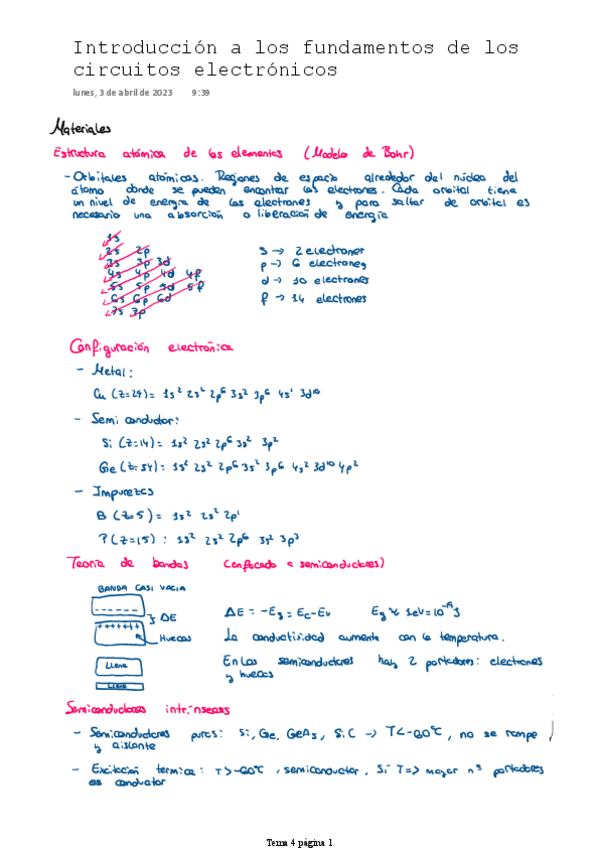 Introducción a los fundamentos de los
circuitos electrónicos
lunes, 3 de abril de 2023 9:39
Materiales
Estructura atómica de los elementos (Modelo de Bohr)
- Orbitales atómicos. Regiones de espacio alrededor del núcleo del
átomo donde se pueden encontrar los electrones. Cada orbital tiene
un nivel de energía de los electrones y para saltar de orbital es
necesario una absorción o liberación de energía
1s
2s 2p
3s 3p 3d
4s 4p 4d 4f
5s 5p 5d 5f
6s 6p 6d
7s 7p
s → 2 electrones
p → 6 electrones
d → 10 electrones
f → 14 electrones
Configuración electrónica
- Metal:
Cu (Z=29)= 1s² 2s² 2p⁶ 3s² 3p⁶ 4s¹ 3d¹⁰
- Semi conductor:
Si (Z=14)= 1s² 2s² 2p⁶ 3s² 3p²
Ge (Z=34)= 1s² 2s² 2p⁶ 3s² 3p⁶ 4s² 3d¹⁰ 4p²
- Impurezas
B (Z=5)= 1s² 2s² 2p¹
P (Z=15): 1s² 2s² 2p⁶ 3s² 3p³
Teoría de bandas (enfocado a semiconductores)
BANDA CASI VACIA
ΔE
Huecos
Llena
Llena
ΔE = -Eg = Ec-Ev Eg ≈ 1eV = 10⁻¹⁹J
La conductividad aumenta con la temperatura.
En los semiconductores hay 2 portadores: electrones
y huecos
Semiconductores intrínsecos
- Semiconductores puros: Si, Ge, GeAs, SiC → T<-60°C, no se rompe
y aislante
- Excitación termica: T>-60°C, semiconductor, Si T => mayor nº portadores
es conductor
Tema 4 página 1